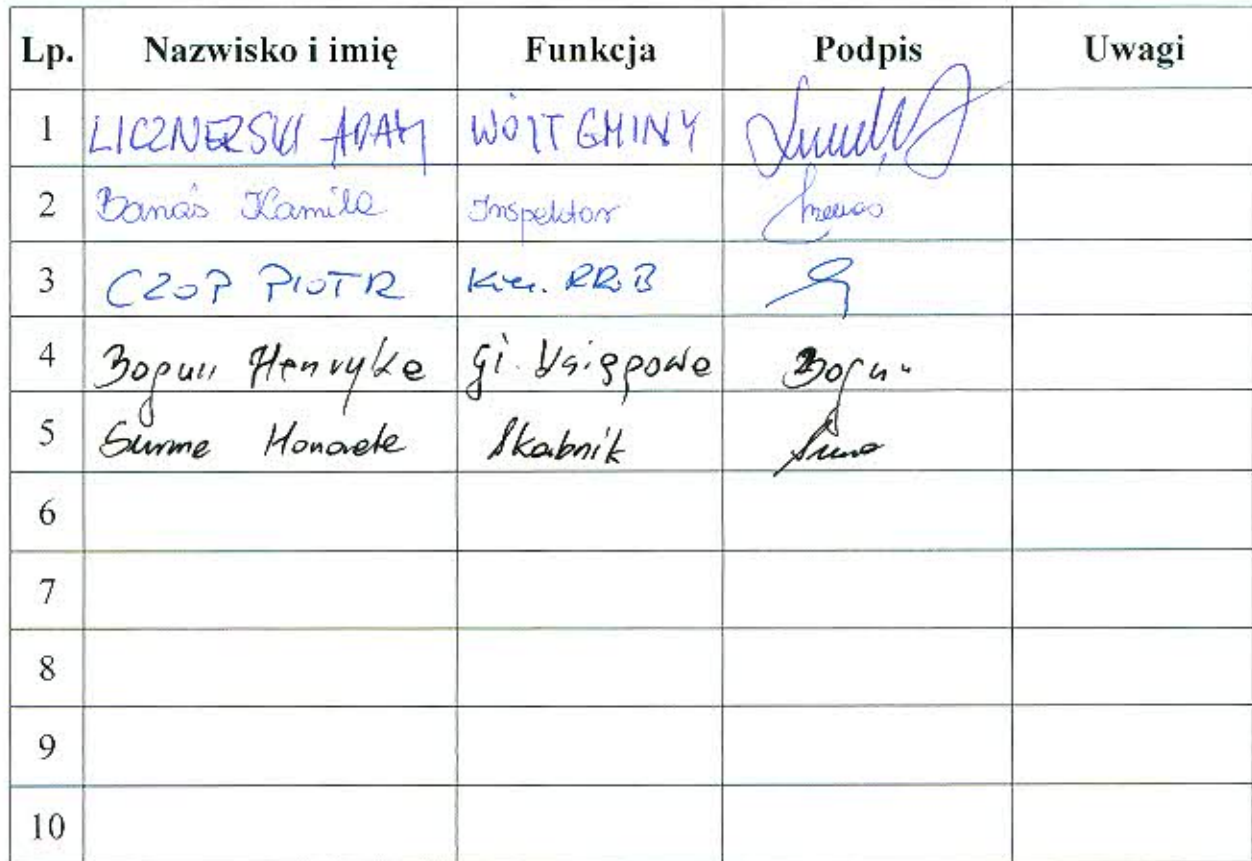 Lp. Nazwisko i imię Funkcja Podpis Uwagi
1 LICZNERSKI ADAM WÓJT GMINY
2 Banaś Kamila Inspektor
3 CZOP PIOTR Kier. RRiB
4 Henryka Gł. Księgowa
5 Surma Skarbnik
6
7
8
9
10